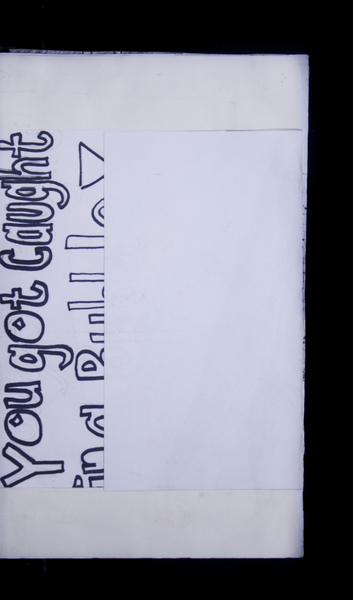 You got caught
in a Bubble